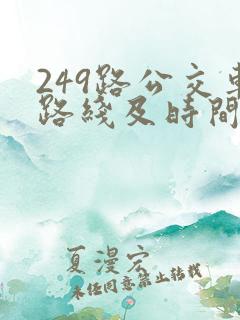 249路公交车
路綫及时間
夏漫宏
未经同意禁止转载